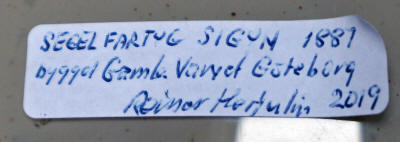 SEGELFARTYG SIGYN 1887
byggd Gamla Varvet Göteborg
2019